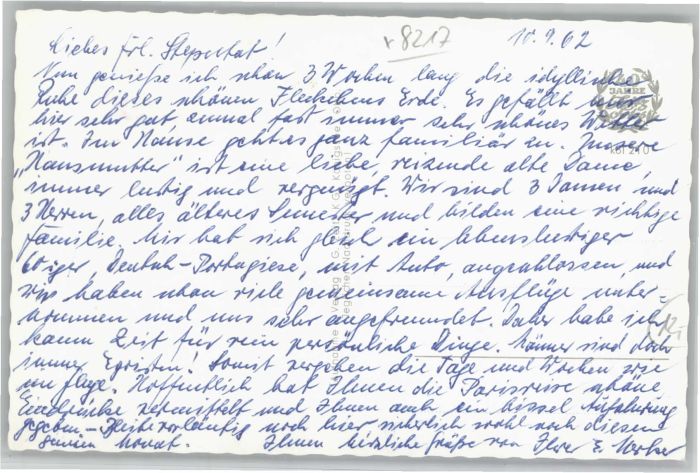 r 8217
10.9.62
Liebes Frl. Steputat!
Nun genieße ich schon 3 Wochen lang die idyllische
Ruhe dieses schönen Fleckchens Erde. Es gefällt mir
hier sehr gut, zumal fast immer sehr schönes Wetter
ist. Im Hause geht es ganz familiär zu. Unsere
„Hausmutter" ist eine liebe, reizende alte Dame,
immer lustig und vergnügt. Wir sind 3 Damen und
3 Herren, alles älteres Semester und bilden eine richtige
Familie. Mir hat sich gleich ein lebenslustiger
60iger, Deutsch-Portugiese, mit Auto, angeschlossen, und
wir haben schon viele gemeinsame Ausflüge unter-
nommen und uns sehr angefreundet. Daher habe ich
kaum Zeit für rein persönliche Dinge. Männer sind doch
immer Egoisten! Sonst vergehen die Tage und Wochen wie
im Fluge. Hoffentlich hat Ihnen die Parisreise schöne
Eindrücke vermittelt und Ihnen auch ein bissel Aufheiterung
gegeben – Bleibe vorläufig noch hier sicherlich wohl noch diesen
ganzen Monat. Ihnen herzliche Grüße von Ihrer E.
40 JAHRE